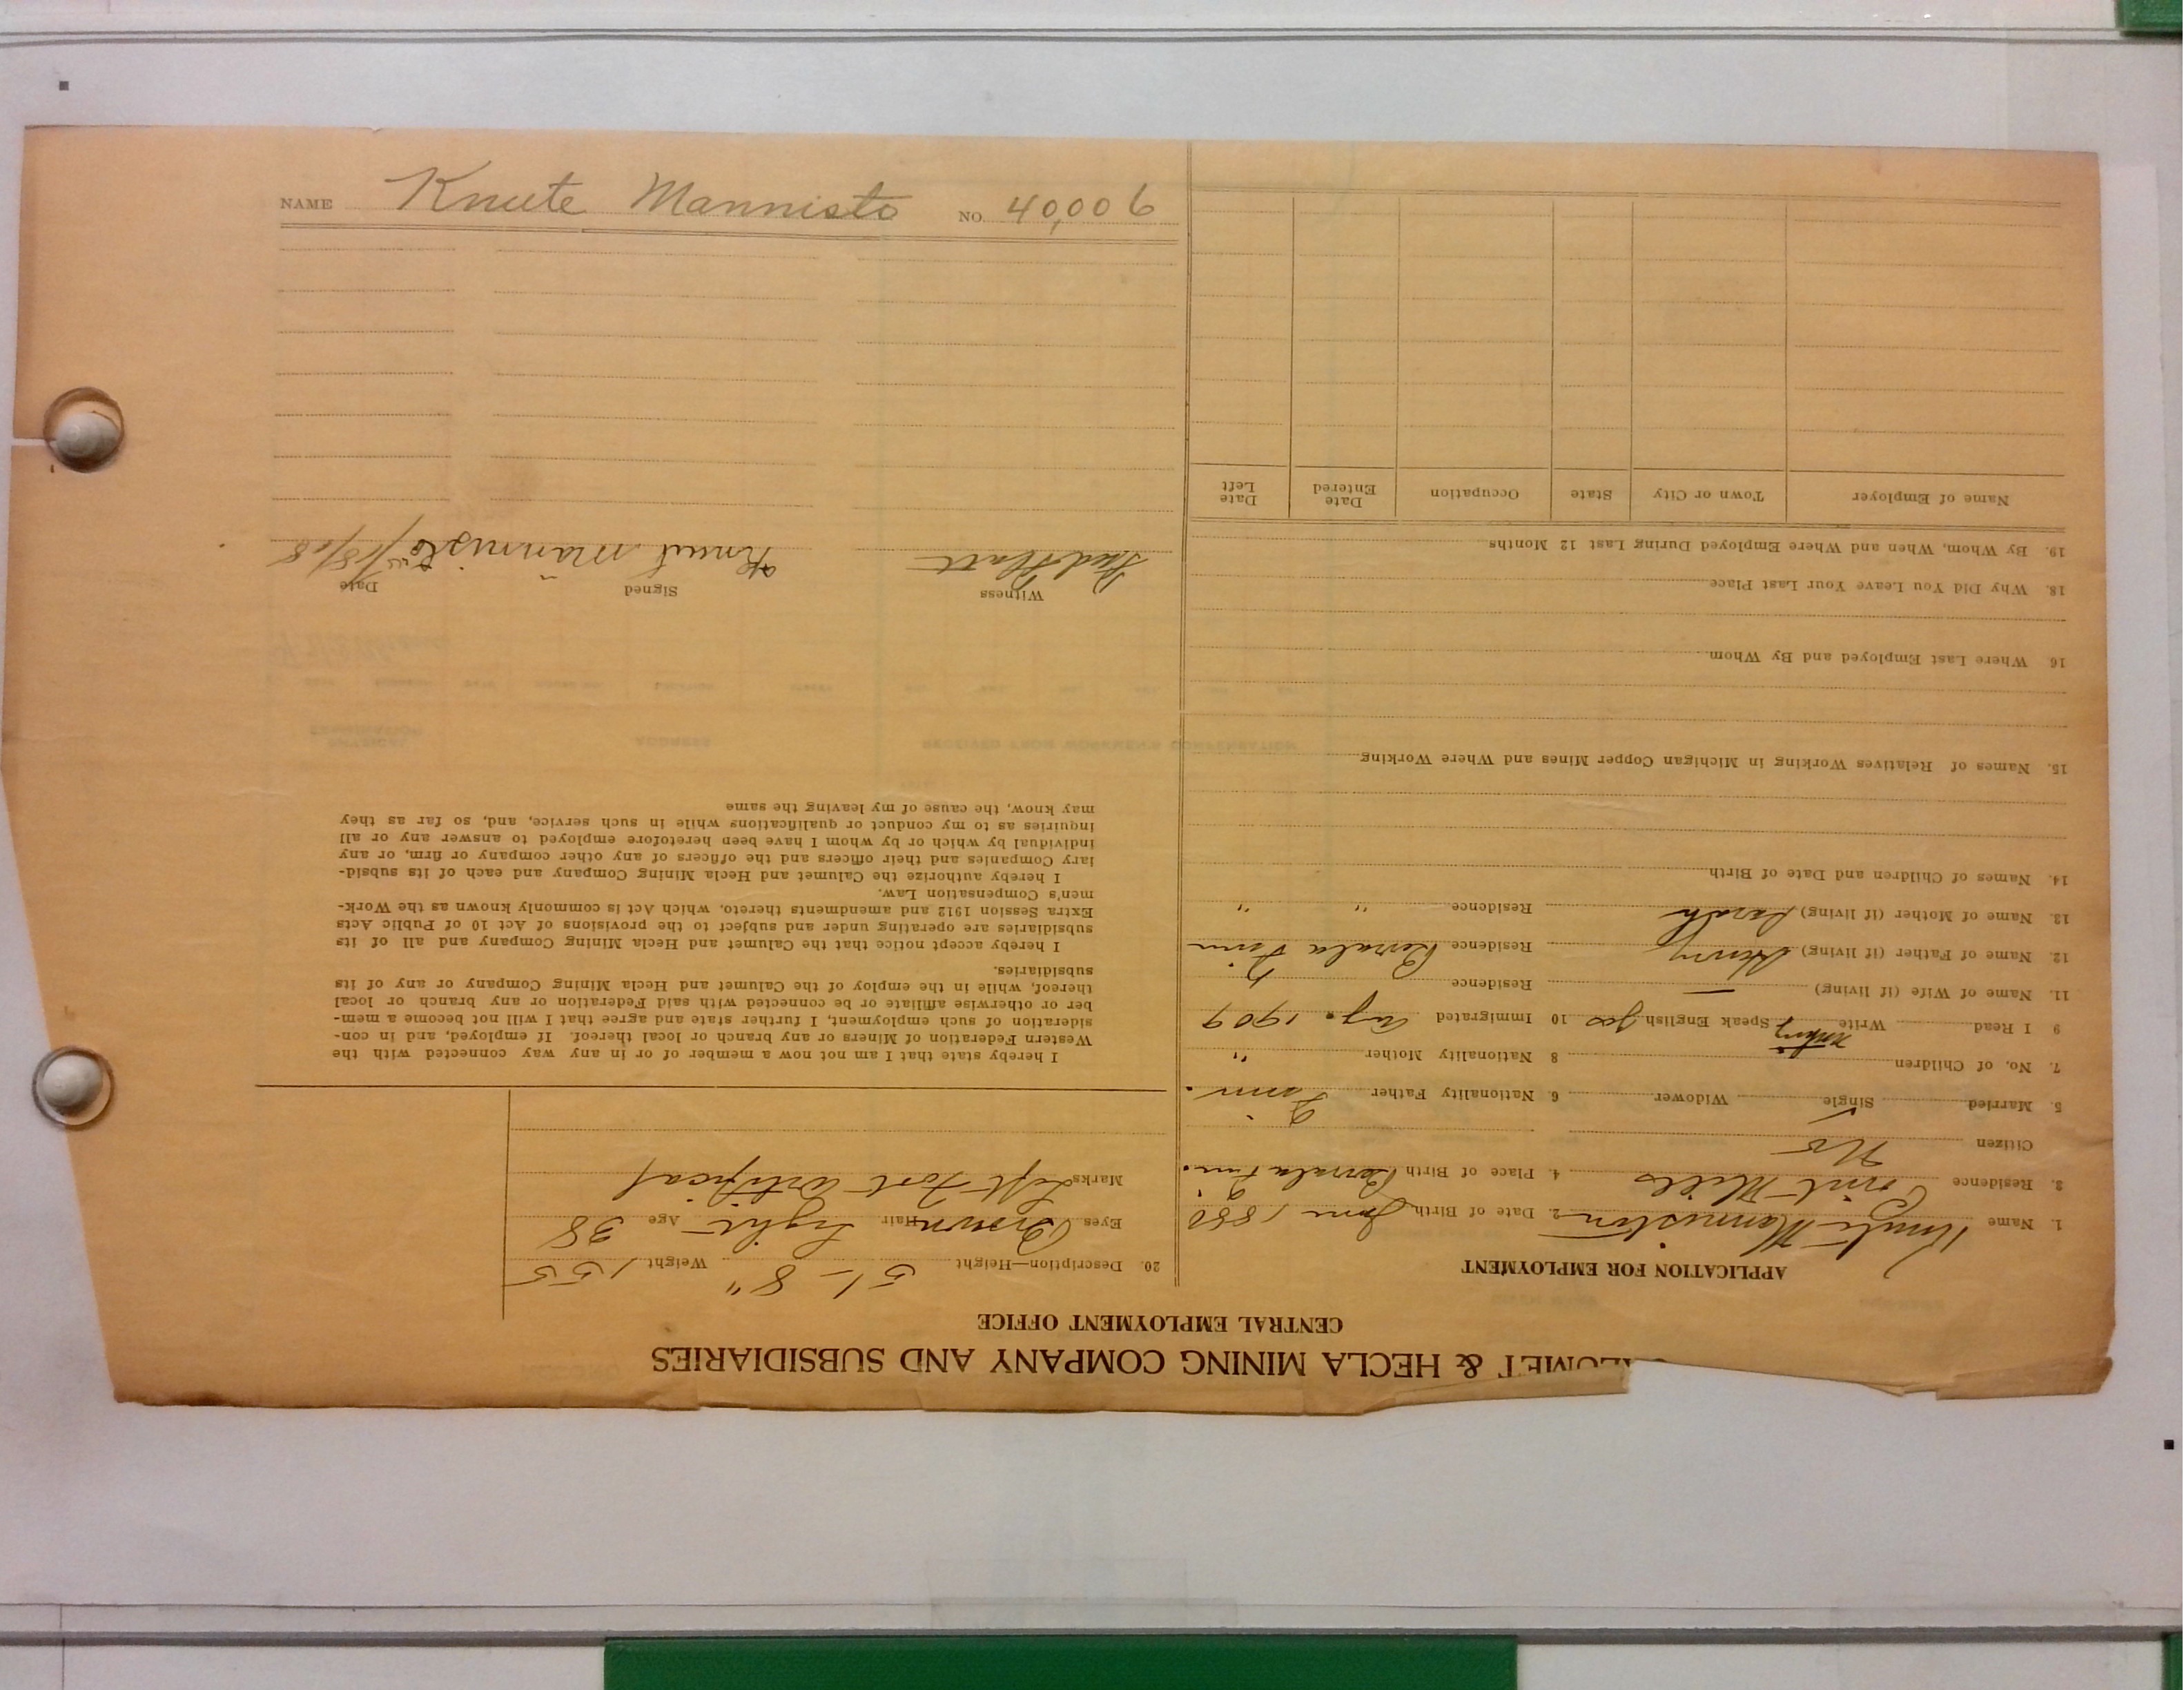 NAME Knute Mannisto NO. 40,006
CALUMET & HECLA MINING COMPANY AND SUBSIDIARIES
CENTRAL EMPLOYMENT OFFICE
APPLICATION FOR EMPLOYMENT
1. Name Knute Manniston 2. Date of Birth June 1880
3. Residence Point Mills 4. Place of Birth Fin.
Citizen No
5. Married Single ✓ Widower 6. Nationality Father Finn.
7. No. of Children 8 Nationality Mother "
9 I Read Write Speak English yes 10 Immigrated Aug. 1909
11. Name of Wife (if living) — Residence
12. Name of Father (if living) Henry Residence Finn
13. Name of Mother (if living) Sarah Residence " "
14. Names of Children and Date of Birth
15. Names of Relatives Working in Michigan Copper Mines and Where Working
16 Where Last Employed and By Whom
18. Why Did You Leave Your Last Place
19. By Whom, When and Where Employed During Last 12 Months
Name of Employer Town or City State Occupation Date Entered Date Left
20. Description—Height 5'-8" Weight 155
Eyes Brown Hair Light Age 38
Marks Left Foot artificial
I hereby state that I am not now a member of or in any way connected with the
Western Federation of Miners or any branch or local thereof. If employed, and in con-
sideration of such employment, I further state and agree that I will not become a mem-
ber or otherwise affiliate or be connected with said Federation or any branch or local
thereof, while in the employ of the Calumet and Hecla Mining Company or any of its
subsidiaries.
I hereby accept notice that the Calumet and Hecla Mining Company and all of its
subsidiaries are operating under and subject to the provisions of Act 10 of Public Acts
Extra Session 1912 and amendments thereto, which Act is commonly known as the Work-
men's Compensation Law.
I hereby authorize the Calumet and Hecla Mining Company and each of its subsid-
iary Companies and their officers and the officers of any other company or firm, or any
individual by which or by whom I have been heretofore employed to answer any or all
inquiries as to my conduct or qualifications while in such service, and, so far as they
may know, the cause of my leaving the same
Witness Signed Date
Knut Männistö